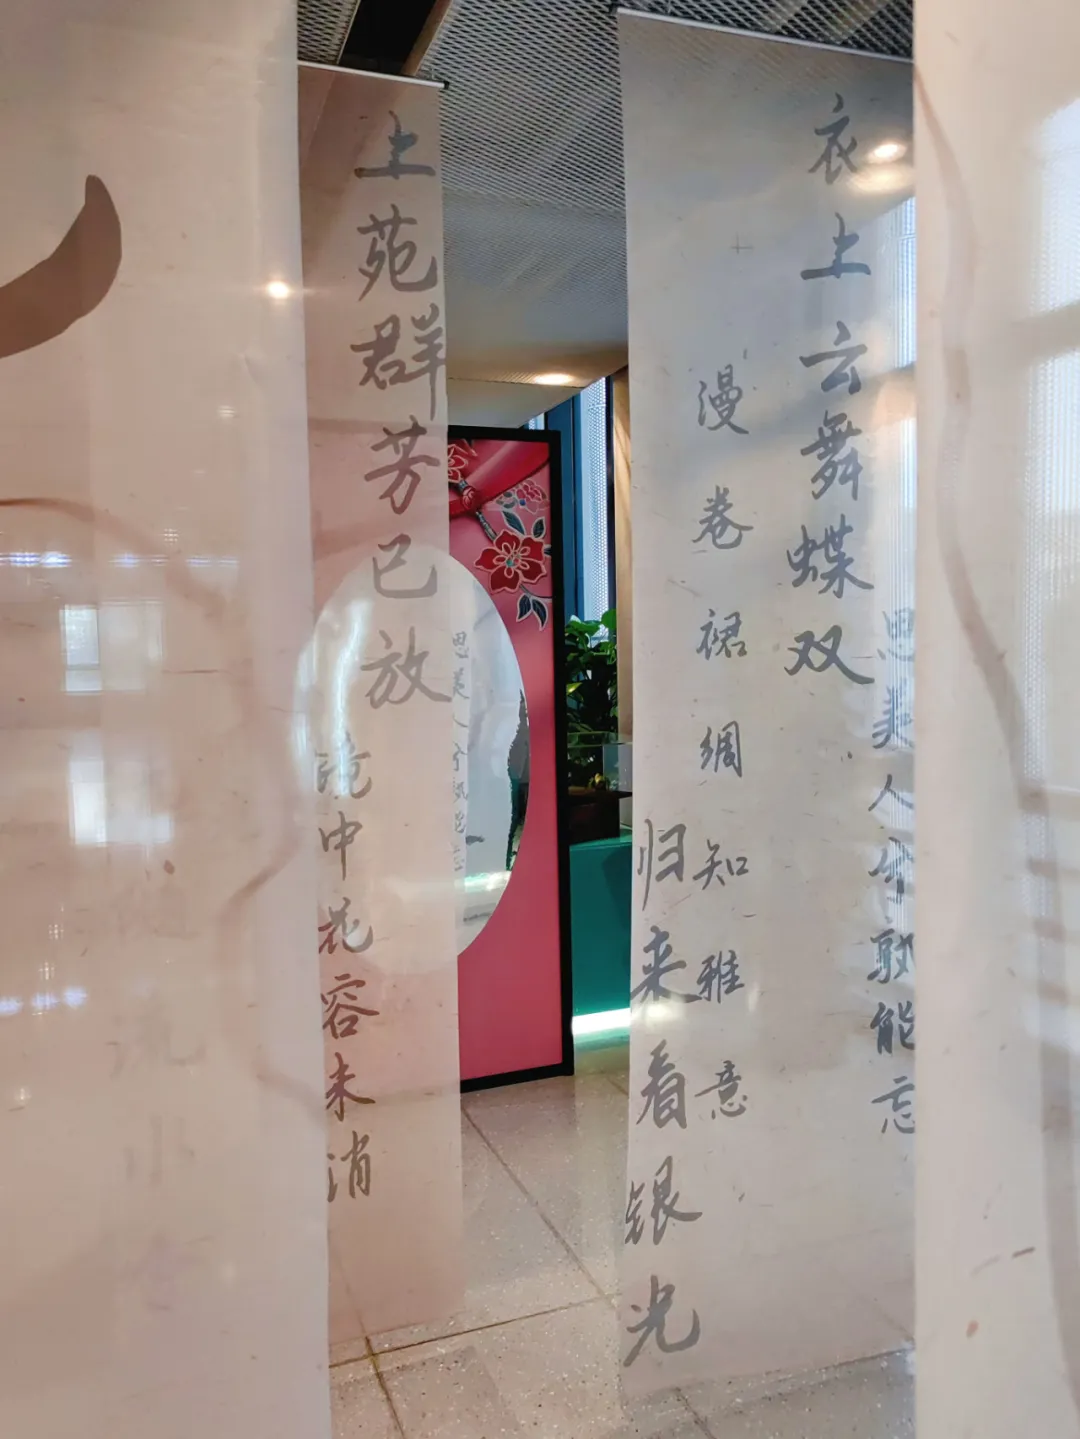 衣上云舞蝶双
漫卷裙绸知雅意
归来看银光
思美人兮孰能忘
上苑群芳已放
镜中花容未消
思美人兮孰能忘